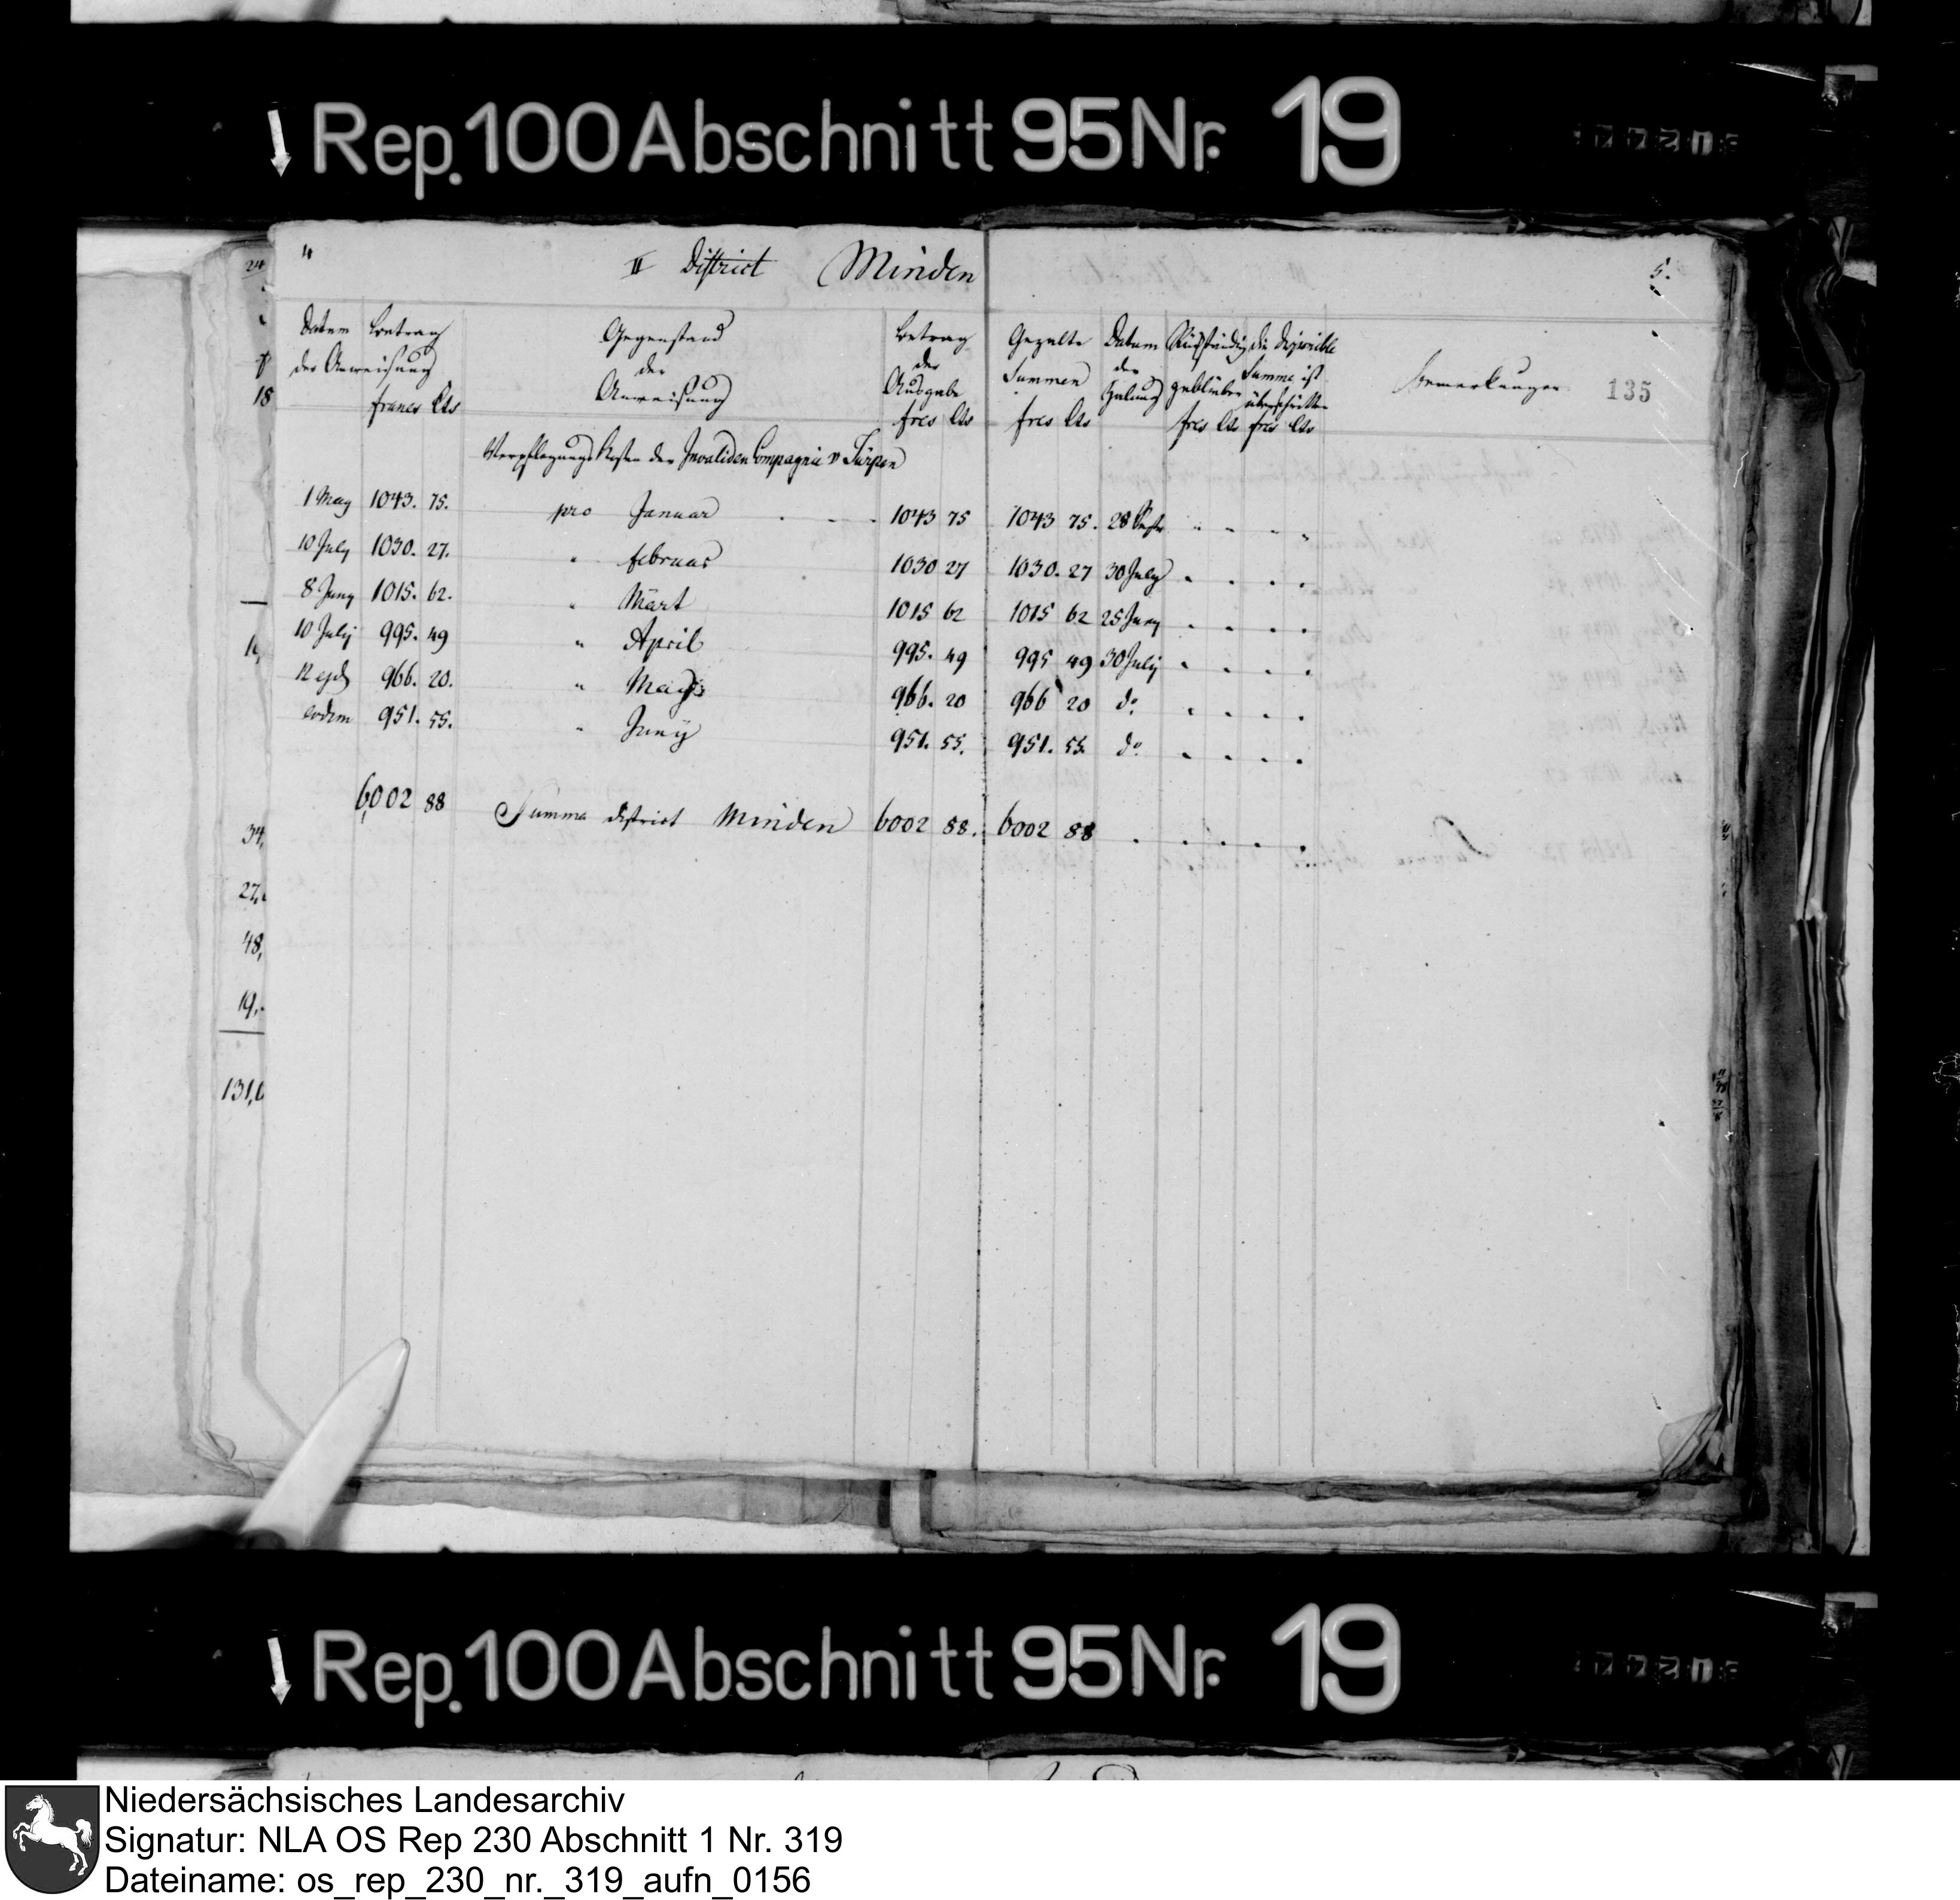 Rep. 100 Abschnitt 95 Nr. 19
4 II District Minden 5.
Datum Betrag Gegenstand Betrag Gezalte Datum Rückständig die disponible
der Anweisung der der Summen der geblieben Summe ist Bemerkungen 135
Anweisung Ausgabe Zalung überschritten
francs Cts frcs Cts frcs Cts frcs Cts frcs Cts
Verpflegungs Kosten der Invaliden Compagnie v
1 May 1043. 75. pro Januar 1043 75 1043 75. 28
10 July 1030. 27. " Februar 1030 27 1030. 27 30 July
8 Juny 1015. 62. " Märt 1015 62 1015 62 25 Juny
10 July 995. 49 " April 995. 49 995 49 30 July
12 ejd 966. 20. " May 966. 20 966 20 do
eodem 951. 55. " Juny 951. 55. 951. 55. do
6002 88 Summa District Minden 6002 88. 6002 88
24
18
34,
27,
48,
19,
131,6
Rep. 100 Abschnitt 95 Nr. 19
Niedersächsisches Landesarchiv
Signatur: NLA OS Rep 230 Abschnitt 1 Nr. 319
Dateiname: os_rep_230_nr._319_aufn_0156